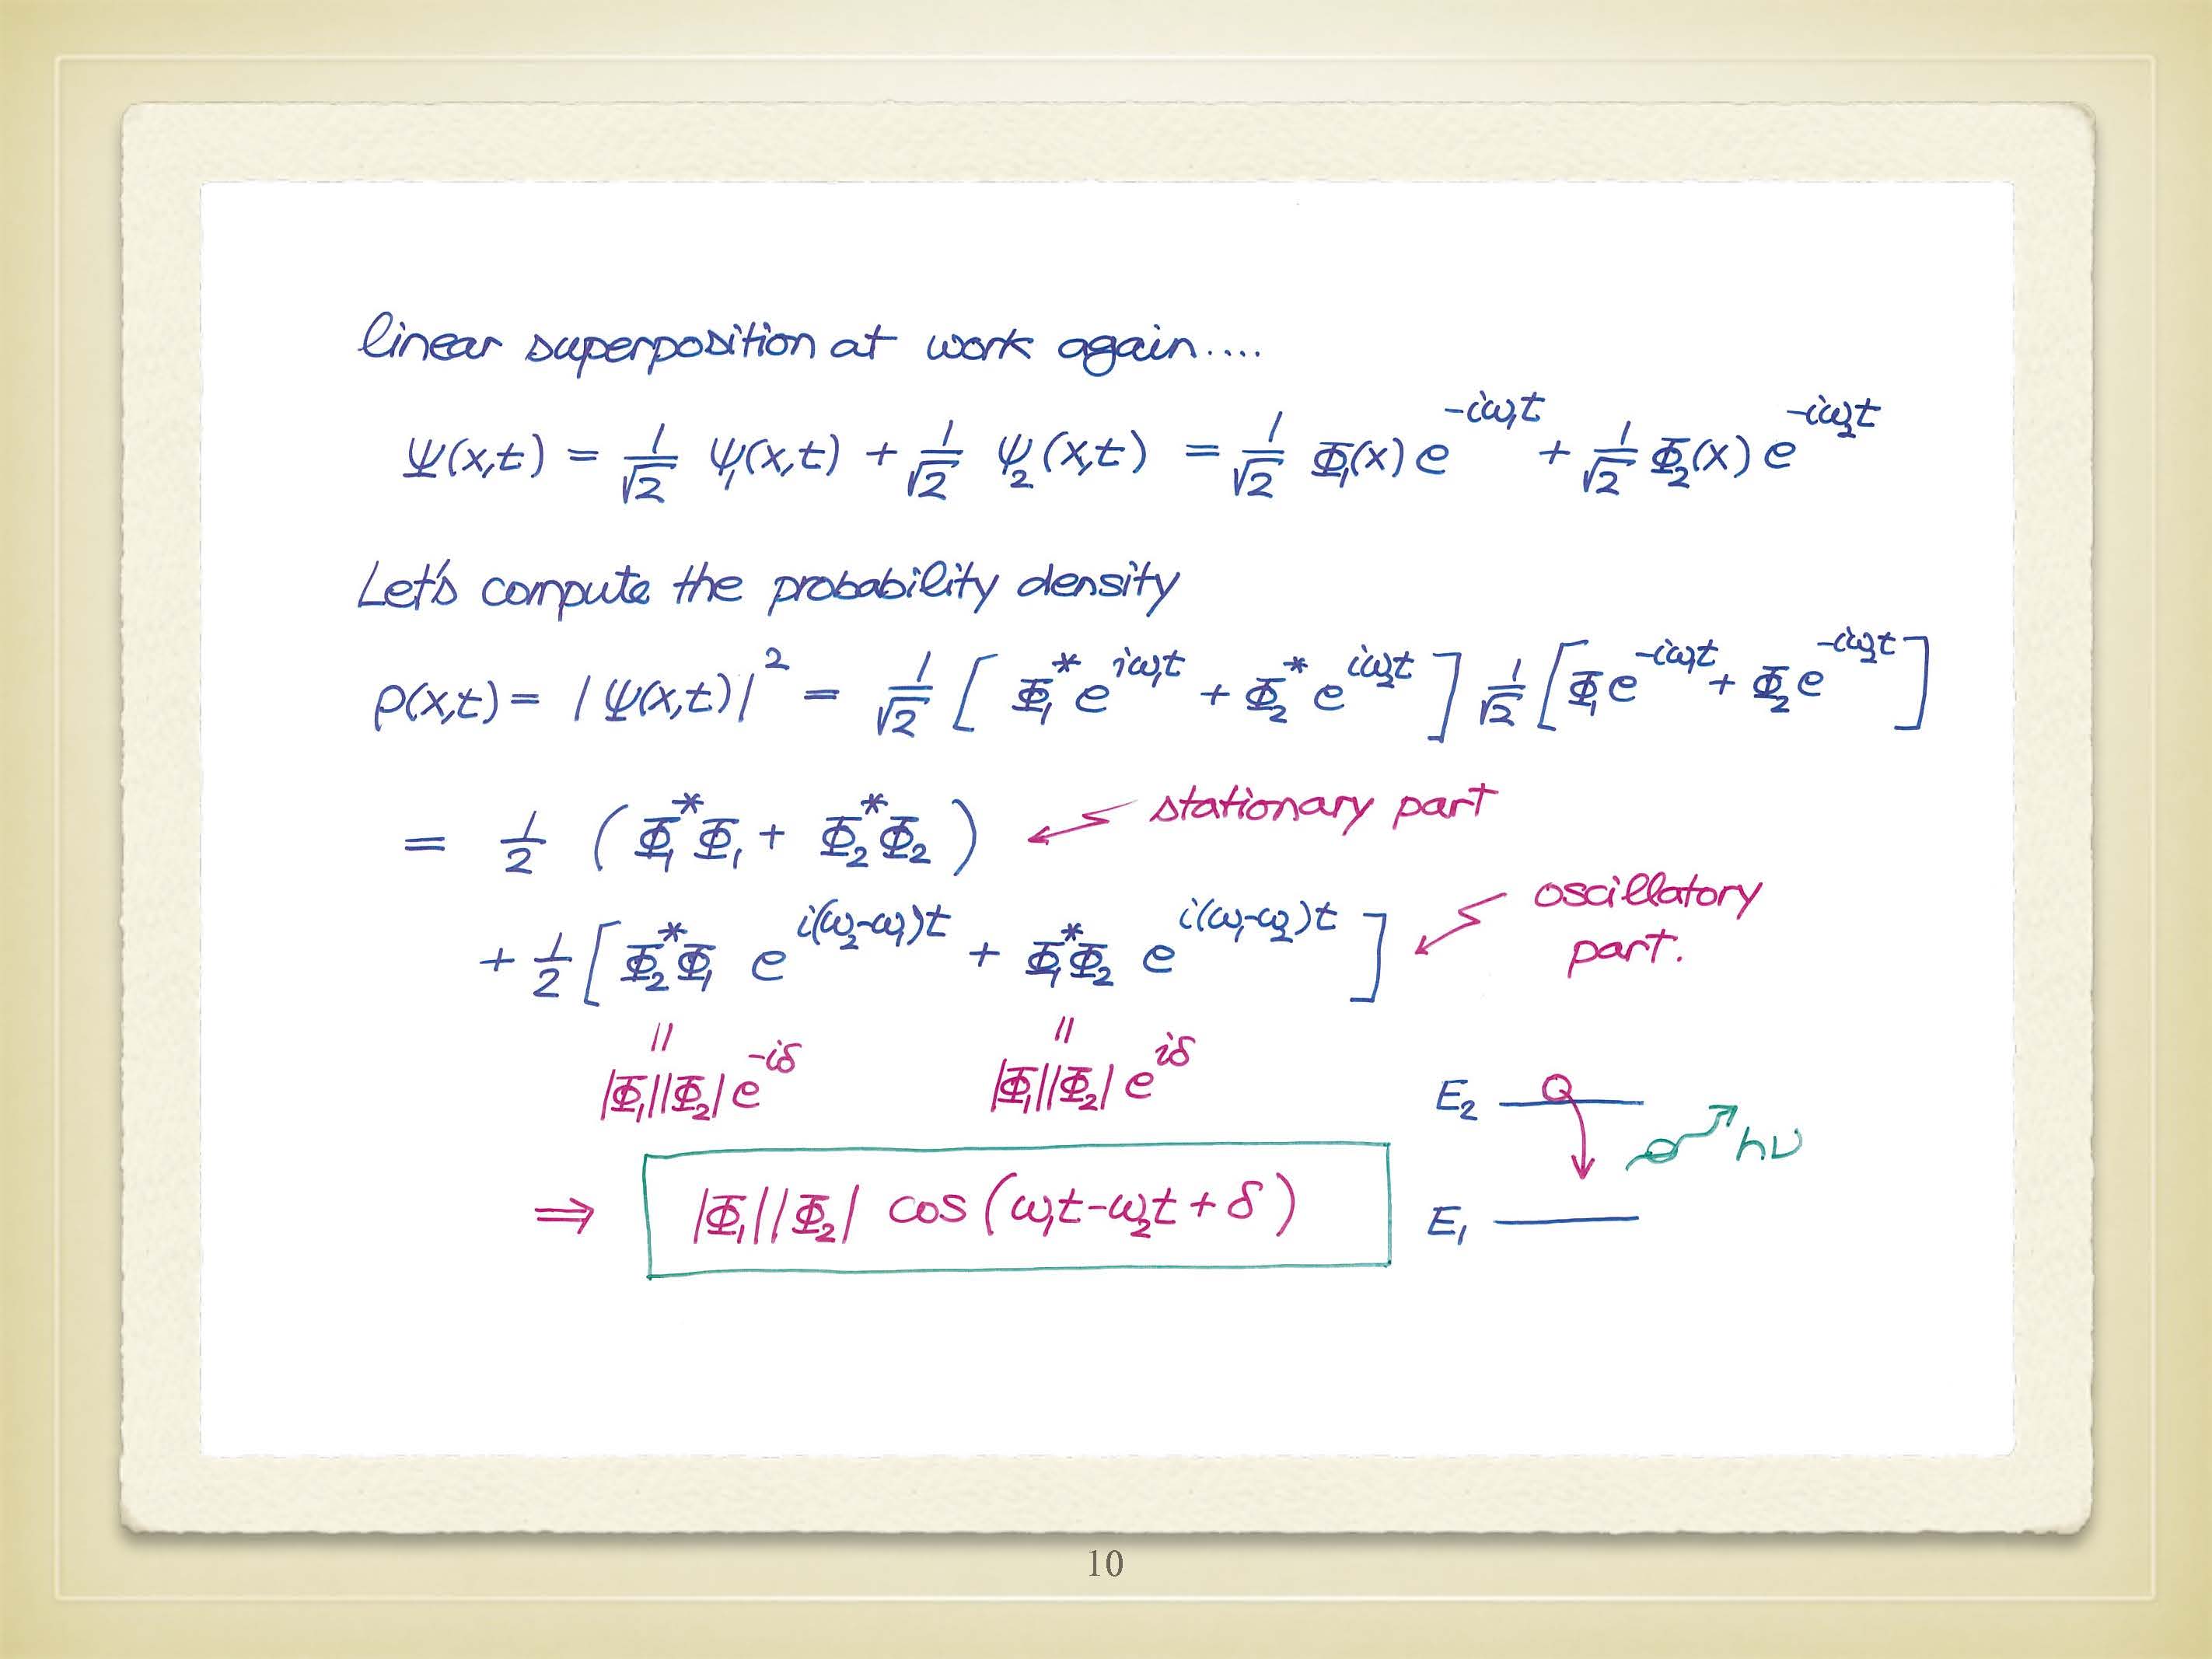 linear superposition at work again....
Ψ(x,t) = 1/√2 ψ₁(x,t) + 1/√2 ψ₂(x,t) = 1/√2 Φ₁(x) e^{-iω₁t} + 1/√2 Φ₂(x) e^{-iω₂t}
Let's compute the probability density
ρ(x,t) = |Ψ(x,t)|² = 1/√2 [ Φ₁* e^{iω₁t} + Φ₂* e^{iω₂t} ] 1/√2 [ Φ₁ e^{-iω₁t} + Φ₂ e^{-iω₂t} ]
= 1/2 ( Φ₁*Φ₁ + Φ₂*Φ₂ ) stationary part
+ 1/2 [ Φ₂*Φ₁ e^{i(ω₂-ω₁)t} + Φ₁*Φ₂ e^{i(ω₁-ω₂)t} ] oscillatory part.
= =
|Φ₁||Φ₂| e^{-iδ} |Φ₁||Φ₂| e^{iδ}
⇒ |Φ₁||Φ₂| cos(ω₁t-ω₂t+δ)
E₂
hν
E₁
10